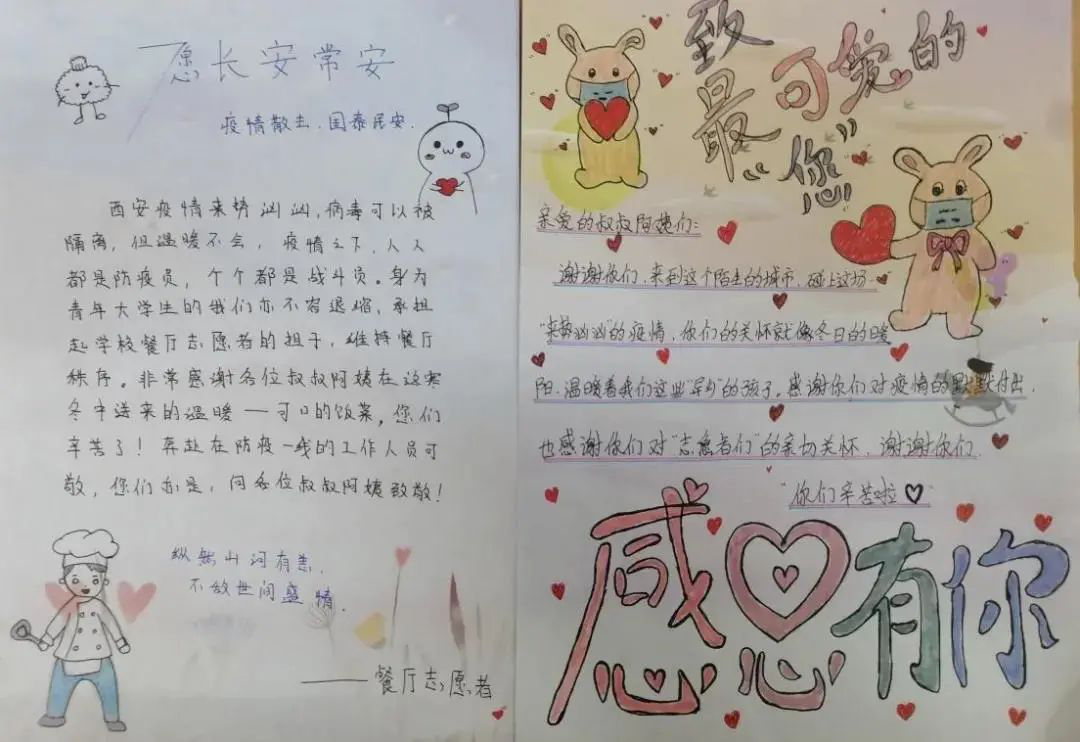 愿长安常安
疫情散去.国泰民安.
西安疫情来势汹汹,病毒可以被
隔离,但温暖不会,疫情之下,人人
都是防疫员,个个都是战斗员。身为
青年大学生的我们亦不容退缩,承担
起学校餐厅志愿者的担子,维持餐厅
秩序。非常感谢各位叔叔阿姨在这寒
冬中送来的温暖——可口的饭菜,您们
辛苦了!奔赴在防疫一线的工作人员可
敬,您们亦是,向各位叔叔阿姨致敬!
纵然山河有恙,
不敌世间盛情.
——餐厅志愿者
致
最可爱的
“您”
亲爱的叔叔阿姨们:
谢谢你们,来到这个陌生的城市,碰上这场
“来势汹汹”的疫情,你们的关怀就像冬日的暖
阳,温暖着我们这些“异乡”的孩子。感谢你们对疫情的默默付出,
也感谢你们对“志愿者们”的亲切关怀,谢谢你们.
“你们辛苦啦♡”
感恩有你